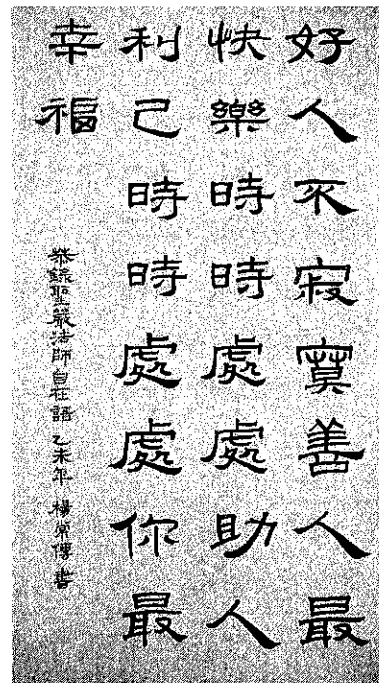 好人不寂寞善人最
快樂時時處處助人
利己時時處處你最
幸福
恭錄聖嚴法師自在語 乙未年 楊常傑 書